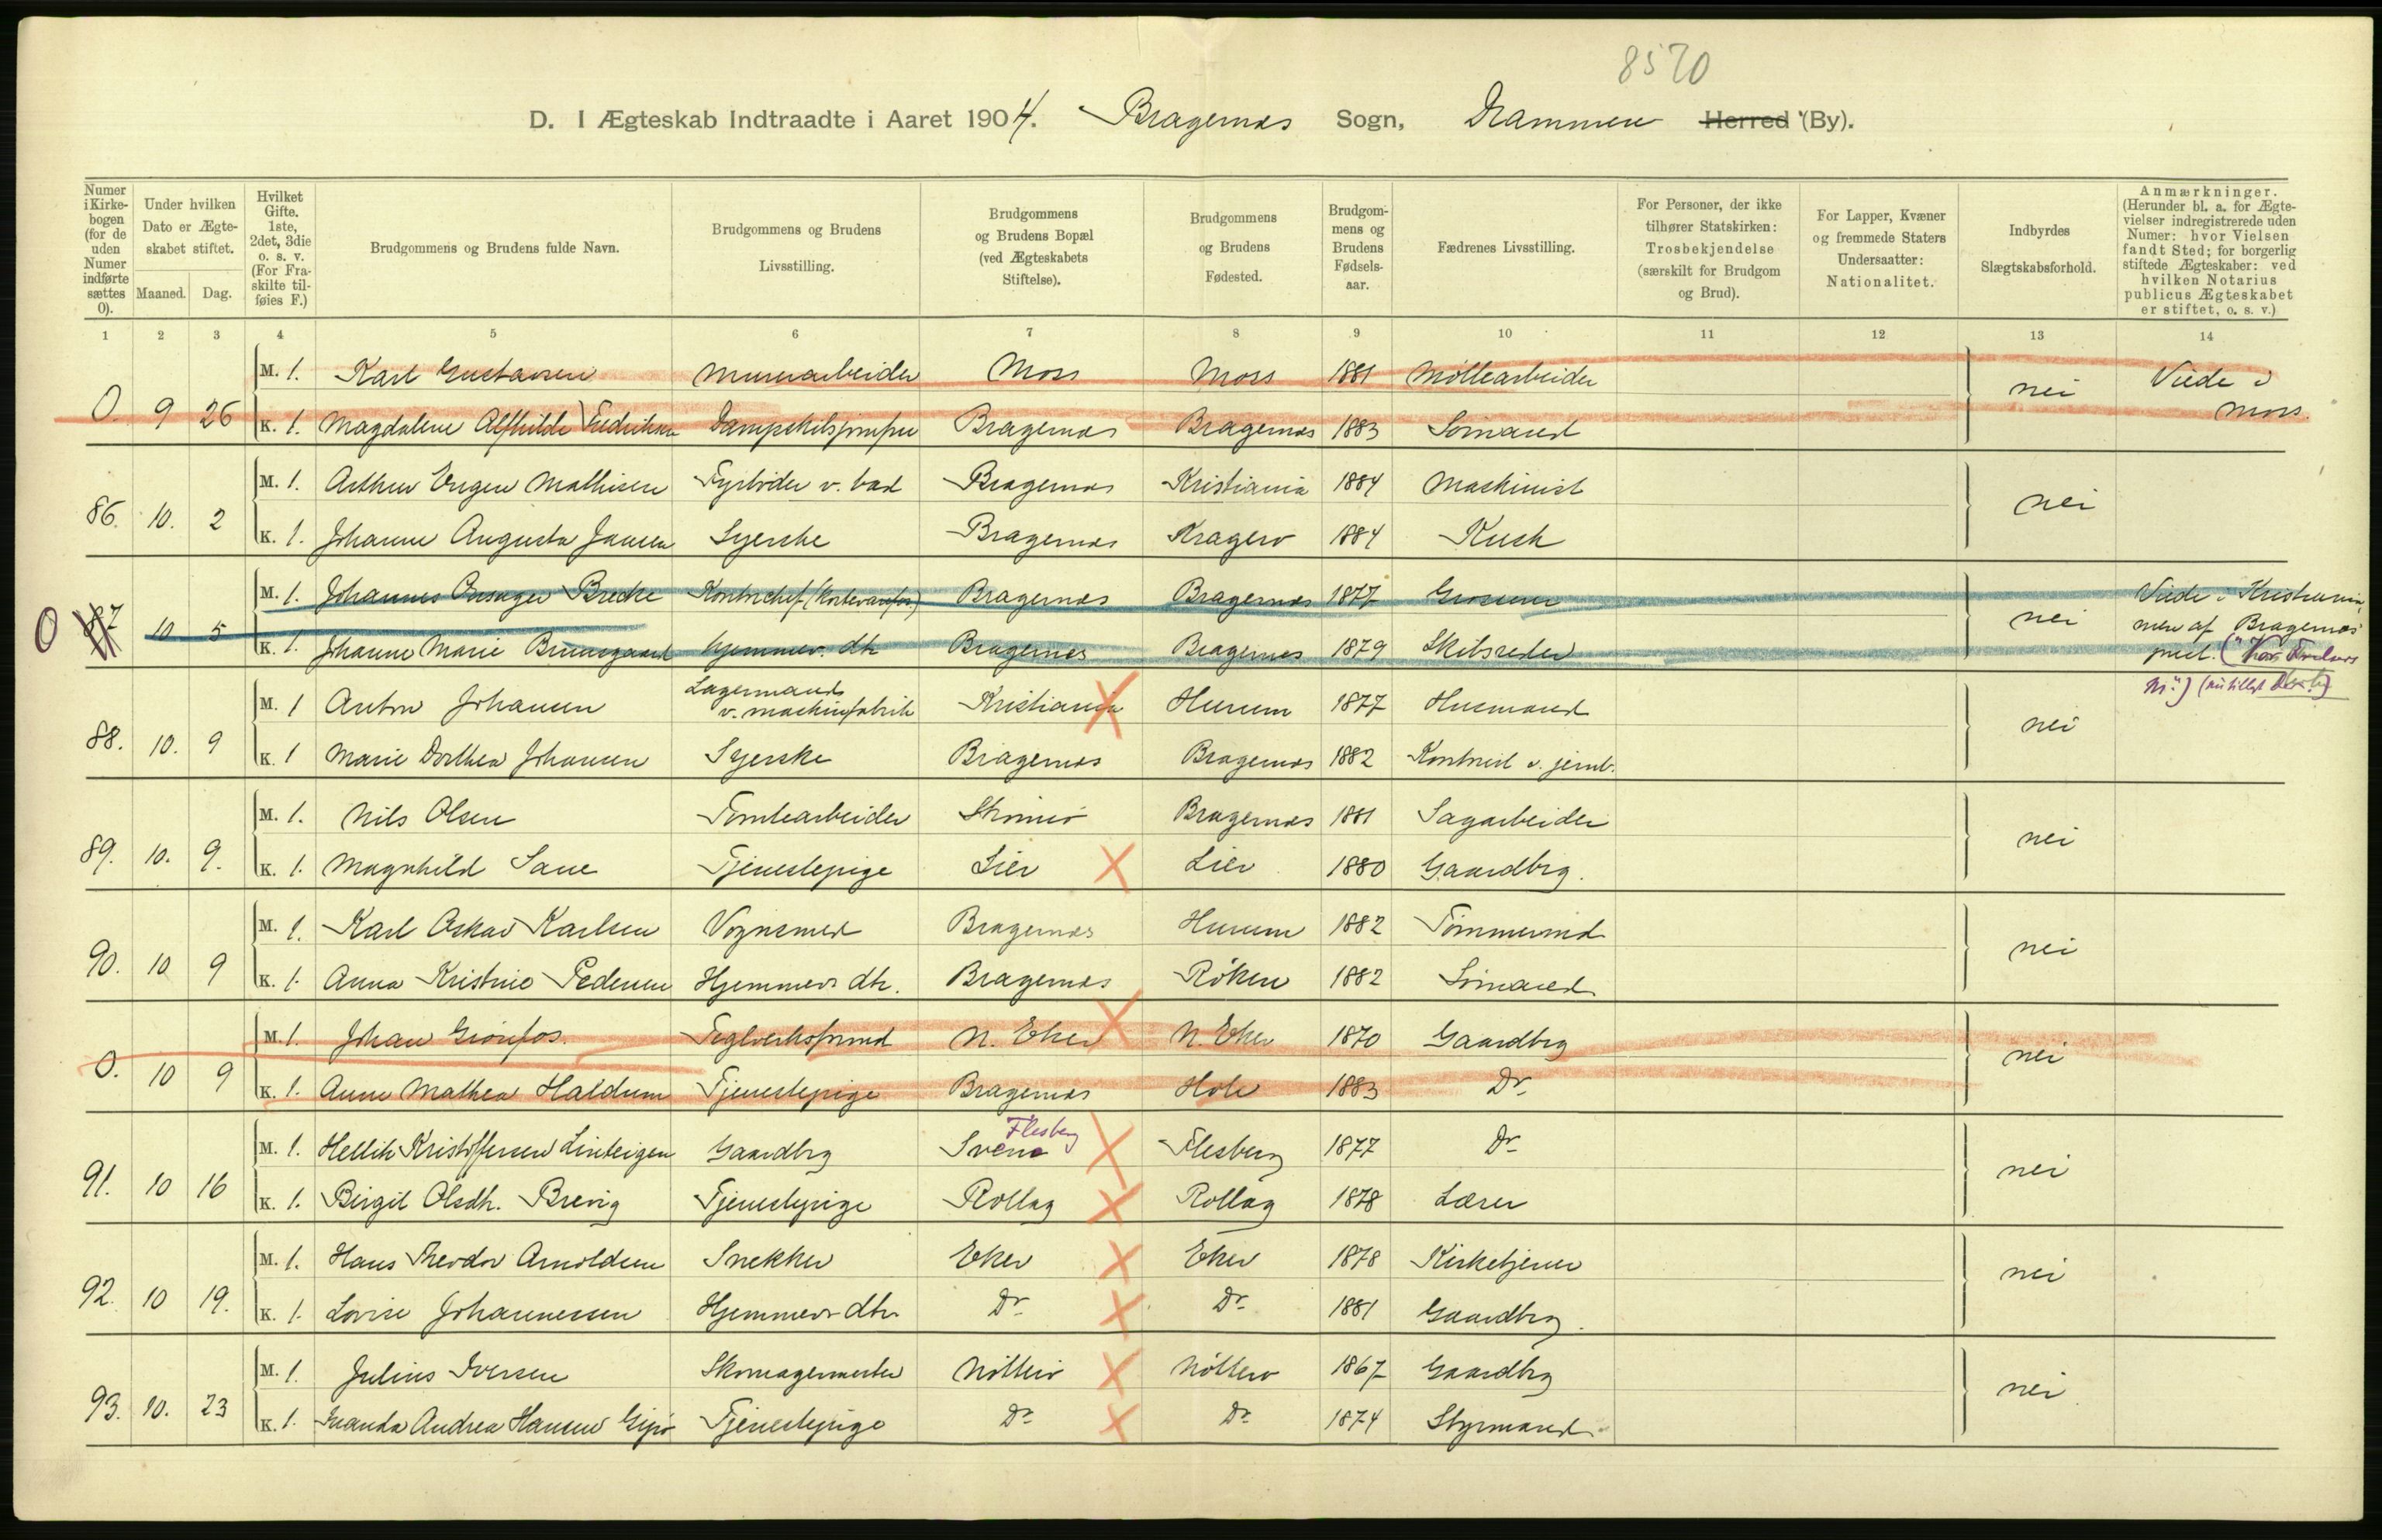 8570
D. I Ægteskab Indtraadte i Aaret 1904. Bragernæs Sogn, Drammen Herred (By).
Numer i Kirkebogen (for de uden Numer indførte sættes 0).
Under hvilken Dato er Ægteskabet stiftet.
Maaned. Dag.
Hvilket Gifte. 1ste, 2det, 3die o. s. v. (For Fraskilte tilføies F.)
Brudgommens og Brudens fulde Navn.
Brudgommens og Brudens Livsstilling.
Brudgommens og Brudens Bopæl (ved Ægteskabets Stiftelse).
Brudgommens og Brudens Fødested.
Brudgommens og Brudens Fødselsaar.
Fædrenes Livsstilling.
For Personer, der ikke tilhører Statskirken: Trosbekjendelse (særskilt for Brudgom og Brud).
For Lapper, Kvæner og fremmede Staters Undersaatter: Nationalitet.
Indbyrdes Slægtskabsforhold.
Anmærkninger. (Herunder bl. a. for Ægtevielser indregistrerede uden Numer: hvor Vielsen fandt Sted; for borgerlig stiftede Ægteskaber: ved hvilken Notarius publicus Ægteskabet er stiftet, o. s. v.)
1 2 3 4 5 6 7 8 9 10 11 12 13 14
M. 1. Karl Gustavsen Murerarbeider Moss Moss 1881 Møllearbeider nei Viede i
0. 9 26 K. 1. Magdalene Alfhilde Fredriksen Bragernæs Bragernæs 1883 Sømand Moss.
M. 1. Arthur Eugen Mathisen Fyrbøder v. bad Bragernæs Kristiania 1884 Maskinist nei
86. 10. 2 K. 1. Johanne Augusta Jansen Syerske Bragernæs Kragerø 1884 Kusk
M. 1. Johannes Onsager Brecke Kontorchef Bragernæs Bragernæs 1877 Grosserer nei Viede i Kristiania,
0 87 10 5 K. 1. Johanne Marie Bruusgaard Hjemmev. dtr Bragernæs Bragernæs 1879 Skibsreder men af Bragernæs
præst.
M. 1 Anton Johansen Lagermand v. maskinfabrik Kristiania Hurum 1877 Husmand nei
88. 10. 9 K. 1 Marie Dorthea Johansen Syerske Bragernæs Bragernæs 1882 Kontorist v. jernb.
M. 1. Nils Olsen Tomtearbeider Strømsø Bragernæs 1881 Sagarbeider nei
89. 10. 9. K. 1. Magnhild Saue Tjenestepige Lier Lier 1880 Gaardbrg.
M. 1. Karl Oskar Karlsen Vognsmed Bragernæs Hurum 1882 Tømmermd nei
90. 10 9 K. 1. Anna Kristine Pedersen Hjemmev. dtr. Bragernæs Røken 1882 Sømand
M. 1. Johan Grønfos. Teglverksformd N. Eker N. Eker 1870 Gaardbrg nei
0. 10 9 K. 1. Anne Mathea Haldum Tjenestepige Bragernæs Hole 1883 Do
M. 1. Hellik Kristoffersen Linteigen Gaardbrg Svene Flesberg Flesberg 1877 Do nei
91. 10 16 K. 1. Birgit Olsdtr. Brevig Tjenestepige Rollag Rollag 1878 Lærer
M. 1. Hans Theodor Arnoldsen Snekker Eker Eker 1878 Kirketjener nei
92. 10 19. K. 1. Lovise Johannessen Hjemmev. dtr. Do Do 1881 Gaardbrg.
M. 1. Julius Iversen Skomagermester Nøtterø Nøtterø 1867 Gaardbrg nei
93. 10. 23 K. 1. Andrea Hansen Tjenestepige Do Do 1874 Styrmand